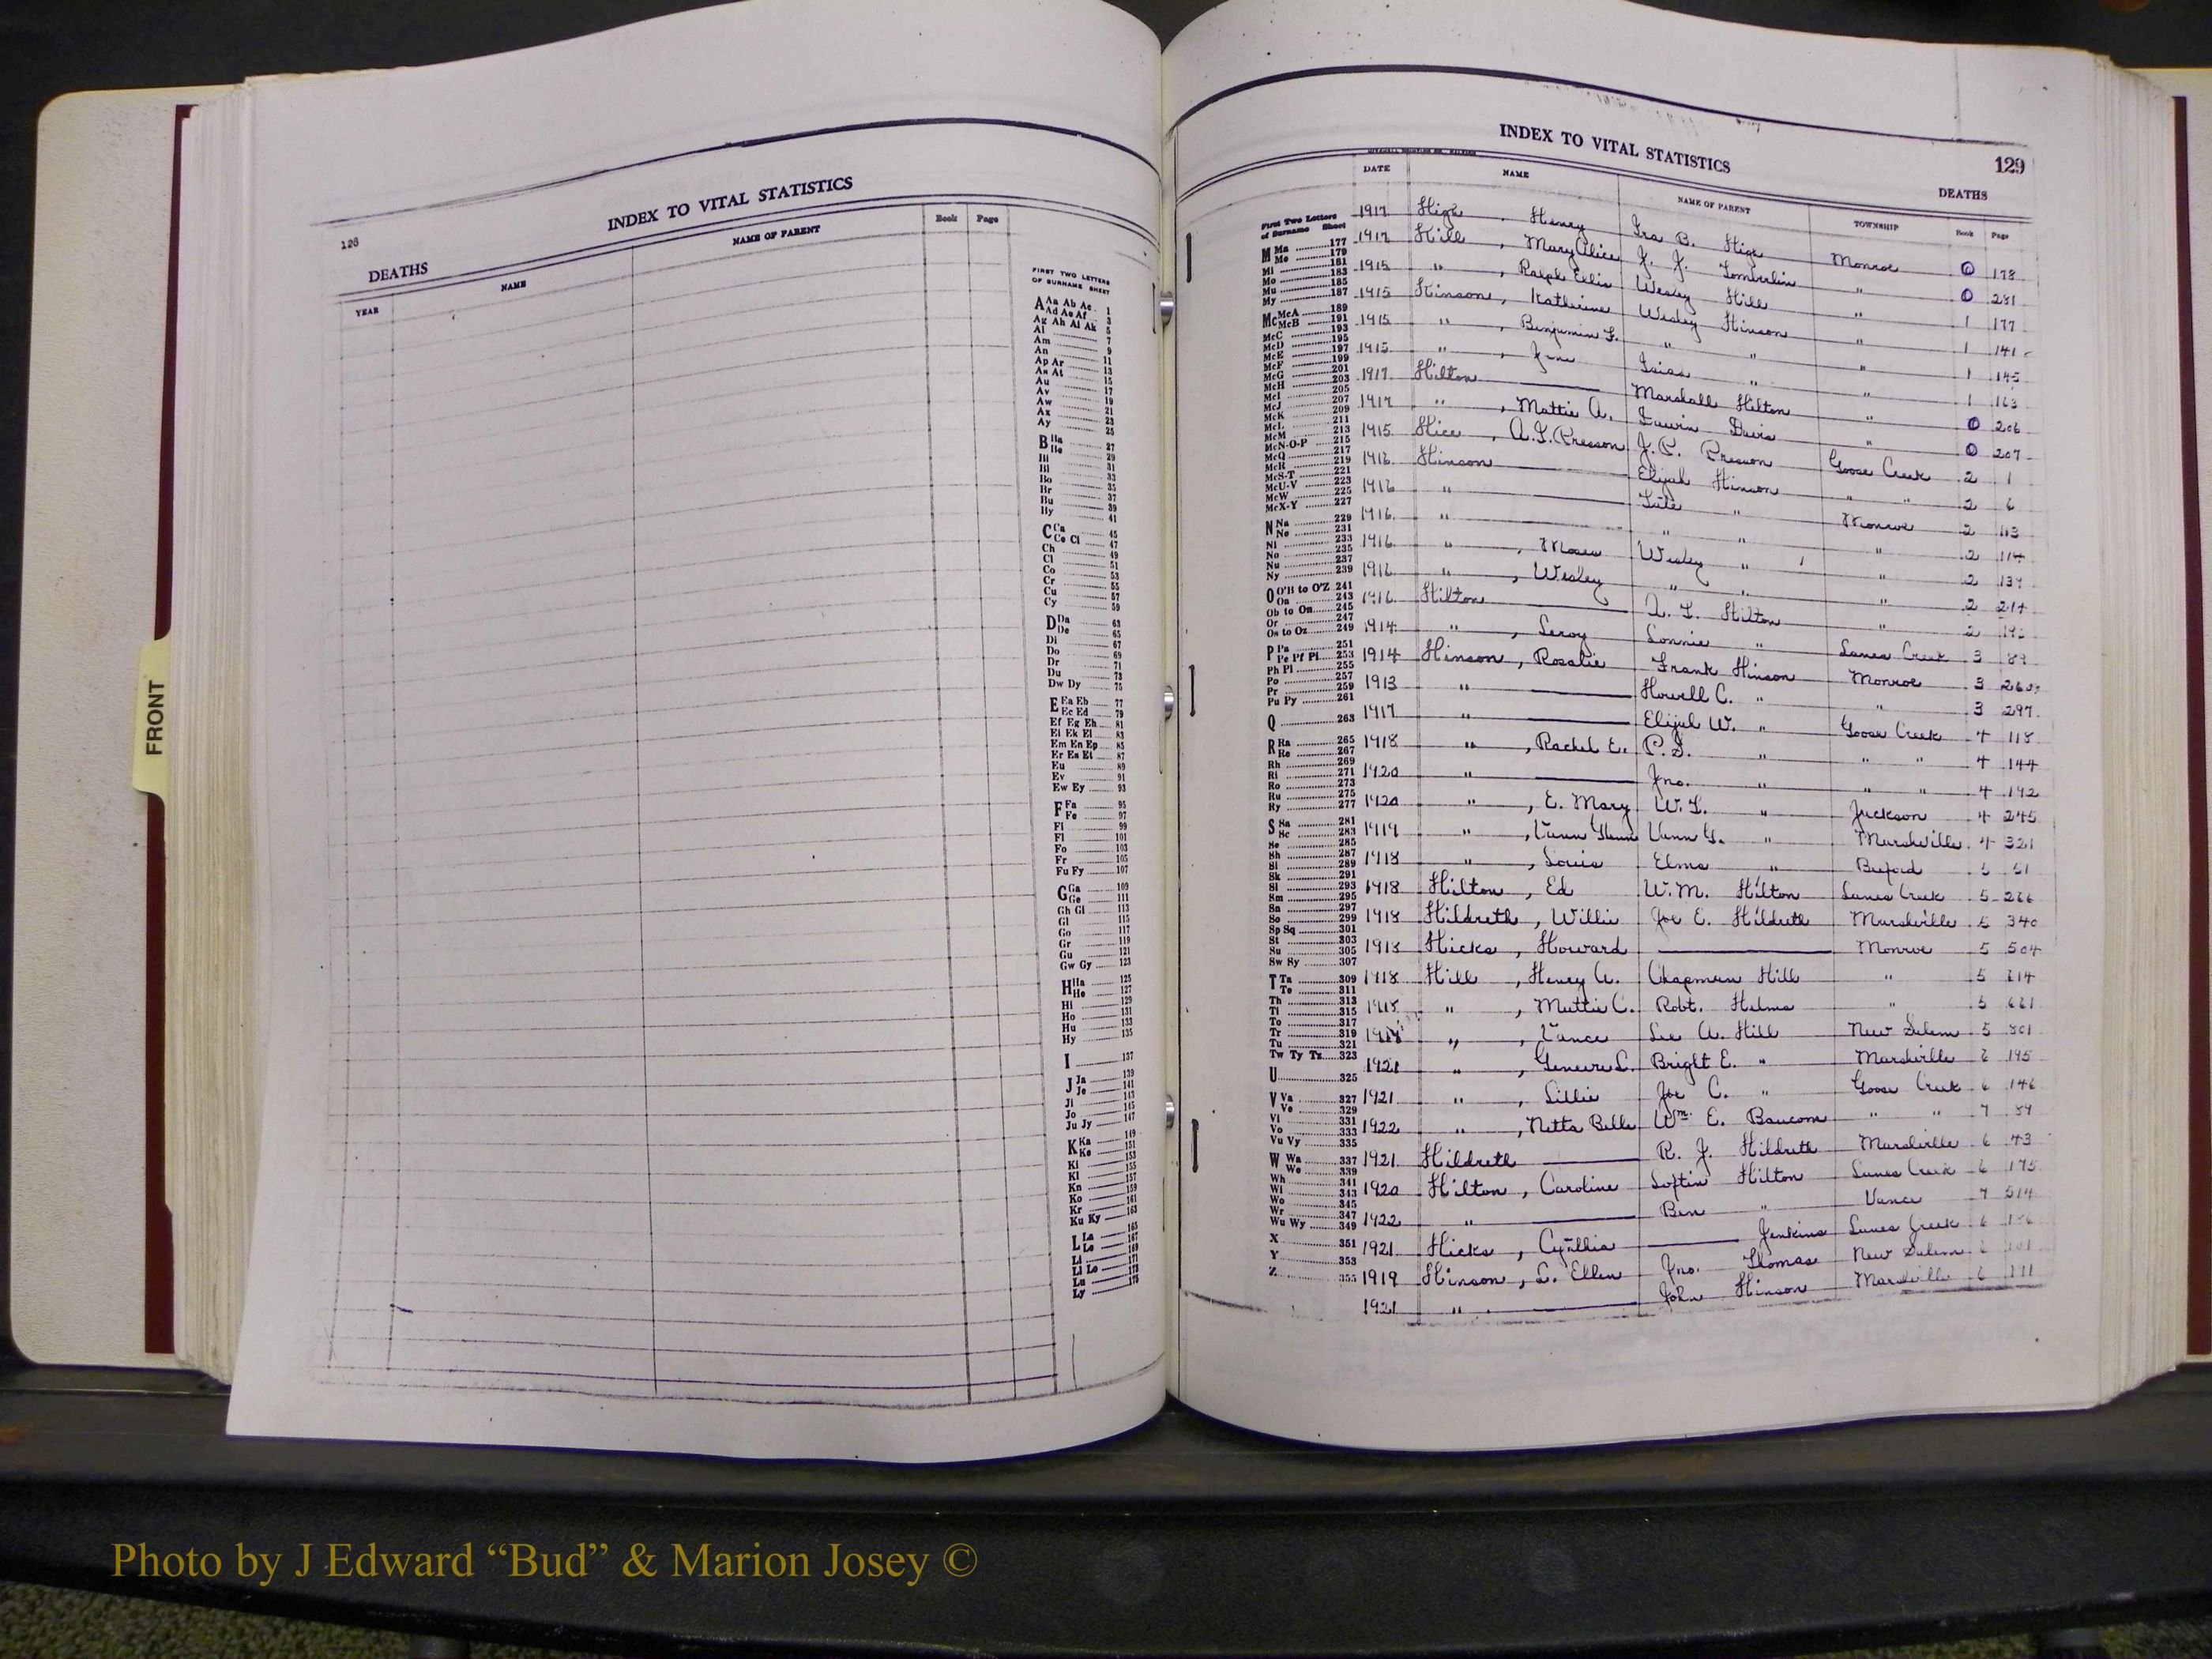 128
INDEX TO VITAL STATISTICS
DEATHS
YEAR NAME NAME OF PARENT Book Page
FIRST TWO LETTERS
OF SURNAME SHEET
A Aa Ab Ac 1
Ad Ae Af 3
Ag Ah Ai Ak 5
Al 7
Am 9
An 11
Ap Ar 13
As At 15
Au 17
Av 19
Aw 21
Ax 23
Ay 25
B Ba 27
Be 29
Bi 31
Bl 33
Bo 35
Br 37
Bu 39
By 41
C Ca 45
Ce Ci 47
Ch 49
Cl 51
Co 53
Cr 55
Cu 57
Cy 59
D Da 63
De 65
Di 67
Do 69
Dr 71
Du 73
Dw Dy 75
E Ea Eb 77
Ec Ed 79
Ef Eg Eh 81
Ei Ek El 83
Em En Ep 85
Er Es Et 87
Eu 89
Ev 91
Ew Ey 93
F Fa 95
Fe 97
Fi 99
Fl 101
Fo 103
Fr 105
Fu Fy 107
G Ga 109
Ge 111
Gh Gi 113
Gl 115
Go 117
Gr 119
Gu 121
Gw Gy 123
H Ha 125
He 127
Hi 129
Ho 131
Hu 133
Hy 135
I 137
J Ja 139
Je 141
Ji 143
Jo 145
Ju Jy 147
K Ka 149
Ke 151
Ki 153
Kl 155
Kn 157
Ko 159
Kr 161
Ku Ky 163
L La 165
Le 167
Li 169
Ll Lo 171
Lu 173
Ly 175
INDEX TO VITAL STATISTICS
129
DEATHS
DATE NAME NAME OF PARENT TOWNSHIP Book Page
First Two Letters
of Surname Sheet
M Ma 177
Me 179
Mi 181
Mo 183
Mu 185
My 187
Mc McA 189
McB 191
McC 193
McD 195
McE 197
McF 199
McG 201
McH 203
McI 205
McJ 207
McK 209
McL 211
McM 213
McN-O-P 215
McQ 217
McR 219
McS-T 221
McU-V 223
McW 225
McX-Y 227
N Na 229
Ne 231
Ni 233
No 235
Nu 237
Ny 239
O O'B to O'Z 241
Oa 243
Ob to On 245
Or 247
Os to Oz 249
P Pa 251
Pe Pf Pi 253
Ph Pl 255
Po 257
Pr 259
Pu Py 261
Q 263
R Ra 265
Re 267
Rh 269
Ri 271
Ro 273
Ru 275
Ry 277
S Sa 281
Sc 283
Se 285
Sh 287
Si 289
Sk 291
Sl 293
Sm 295
Sn 297
So 299
Sp Sq 301
St 303
Su 305
Sw Sy 307
T Ta 309
Te 311
Th 313
Ti 315
To 317
Tr 319
Tu 321
Tw Ty Tz 323
U 325
V Va 327
Ve 329
Vi 331
Vo 333
Vu Vy 335
W Wa 337
We 339
Wh 341
Wi 343
Wo 345
Wr 347
Wu Wy 349
X 351
Y 353
Z 355
1917 High, Henry Ira B. High Monroe 0 178
1917 Hill, Mary Alice J. J. Tomberlin " 0 281
1915 ", Ralph Ellis Wesley Hill " 1 177
1915 Hinson, Katherine Wesley Hinson " 1 141
1915 ", Benjamin F. " " " 1 145
1915 ", June Isias " " 1 163
1917 Hilton Marshall Hilton " 0 206
1917 ", Mattie A. Davis " 0 207
1915 Hice, A.L. Presson J.P. Presson Goose Creek 2 1
1916 Hinson Elijah Hinson " " 2 6
1916 " Lute " Monroe 2 113
1916 " " " " 2 114
1916 ", Moses Wesley " " 2 137
1916 ", Wesley " " " 2 214
1916 Hilton A. L. Hilton " 2
1914 ", Leroy Lonnie " Lanes Creek 3 89
1914 Hinson, Rosalie Frank Hinson Monroe 3
1913 " Howell C. " " 3 297
1917 " Elijah W. " Goose Creek 4 118
1918 ", Rachel E. P.S. " " " 4 144
1920 " Jno. " " " 4 192
1920 ", E. Mary W. L. " Jackson 4 245
1919 ", Vann Glenn Vann G. " Marshville 4 321
1918 ", Louis Elms " Buford 5 51
1918 Hilton, Ed W.M. Hilton Lanes Creek 5 266
1918 Hildreth, Willie Joe E. Hildreth Marshville 5 340
1918 Hicks, Howard Monroe 5 504
1918 Hill, Henry A. Chapman Hill " 5 614
1918 ", Mattie C. Robt. Helms " 5 661
1918 ", Vance Lee A. Hill New Salem 5 801
1921 ", Genevre L. Bright E. " Marshville 6 195
1921 ", Lillie Joe C. " Goose Creek 6 146
1922 ", Netta Belle Wm. E. Baucom " " 7 89
1921 Hildreth R. J. Hildreth Marshville 6 43
1920 Hilton, Caroline Loftin Hilton Lanes Creek 6 175
1922 " Ben " Vance 7 514
1921 Hicks, Cynthia Jenkins Lanes Creek 6
1919 Hinson, L. Ellen Jno. Thomas New Salem 6
1921 " John Hinson Marshville 6 111
FRONT
Photo by J Edward “Bud” & Marion Josey ©